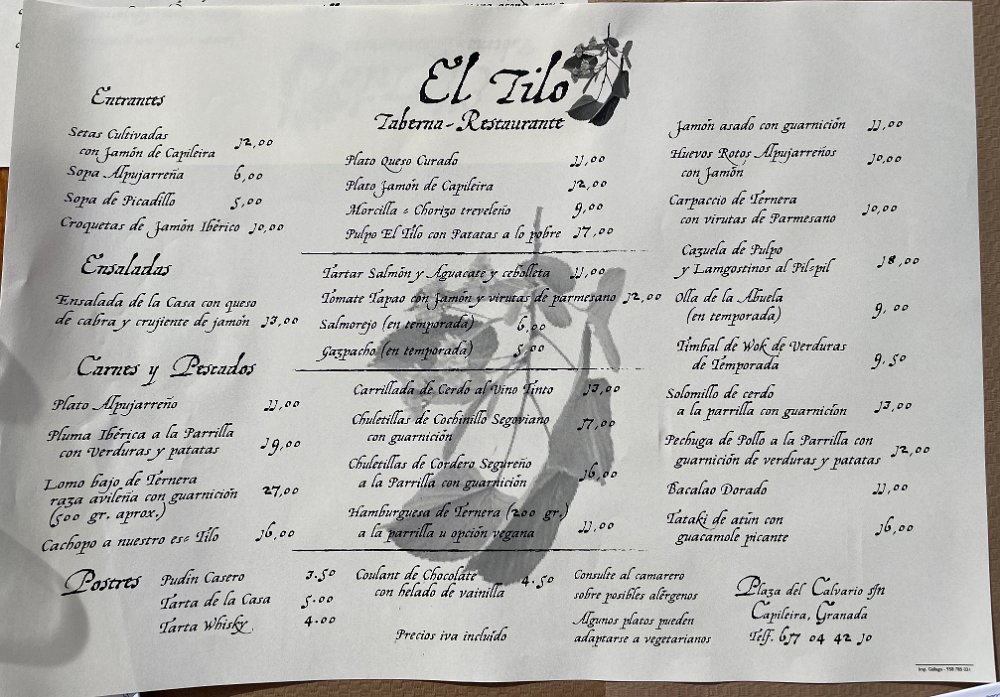 El Tilo
Taberna-Restaurante
Entrantes
Setas Cultivadas
con Jamón de Capileira 12,00
Sopa Alpujarreña 6,00
Sopa de Picadillo 5,00
Croquetas de Jamón Ibérico 10,00
Ensaladas
Ensalada de la Casa con queso
de cabra y crujiente de jamón 13,00
Carnes y Pescados
Plato Alpujarreño 11,00
Pluma Ibérica a la Parrilla
con Verduras y patatas 19,00
Lomo bajo de Ternera
raza avileña con guarnición 27,00
(500 gr. aprox.)
Cachopo a nuestro es= Tilo 16,00
Plato Queso Curado 11,00
Plato Jamón de Capileira 12,00
Morcilla = Chorizo treveleño 9,00
Pulpo El Tilo con Patatas a lo pobre 17,00
Tartar Salmón y Aguacate y cebolleta 11,00
Tomate Tapao con Jamón y virutas de parmesano 12,00
Salmorejo (en temporada) 6,00
Gazpacho (en temporada) 5,00
Carrillada de Cerdo al Vino Tinto 13,00
Chuletillas de Cochinillo Segoviano 17,00
con guarnición
Chuletillas de Cordero Segureño
a la Parrilla con guarnición 16,00
Hamburguesa de Ternera (200 gr.)
a la parrilla u opción vegana 11,00
Jamón asado con guarnición 11,00
Huevos Rotos Alpujarreños 10,00
con Jamón
Carpaccio de Ternera
con virutas de Parmesano 10,00
Cazuela de Pulpo
y Lamgostinos al Pil=pil 18,00
Olla de la Abuela
(en temporada) 9,00
Timbal de Wok de Verduras
de Temporada 9,50
Solomillo de cerdo
a la parrilla con guarnicion 13,00
Pechuga de Pollo a la Parrilla con
guarnición de verduras y patatas 12,00
Bacalao Dorado 11,00
Tataki de atún con
guacamole picante 16,00
Postres
Pudin Casero 3.50
Tarta de la Casa 5.00
Tarta Whisky 4.00
Coulant de Chocolate 4.50
con helado de vainilla
Precios iva incluído
Consulte al camarero
sobre posibles alérgenos
Algunos platos pueden
adaptarse a vegetarianos
Plaza del Calvario s/n
Capileira, Granada
Telf. 677 04 42 10